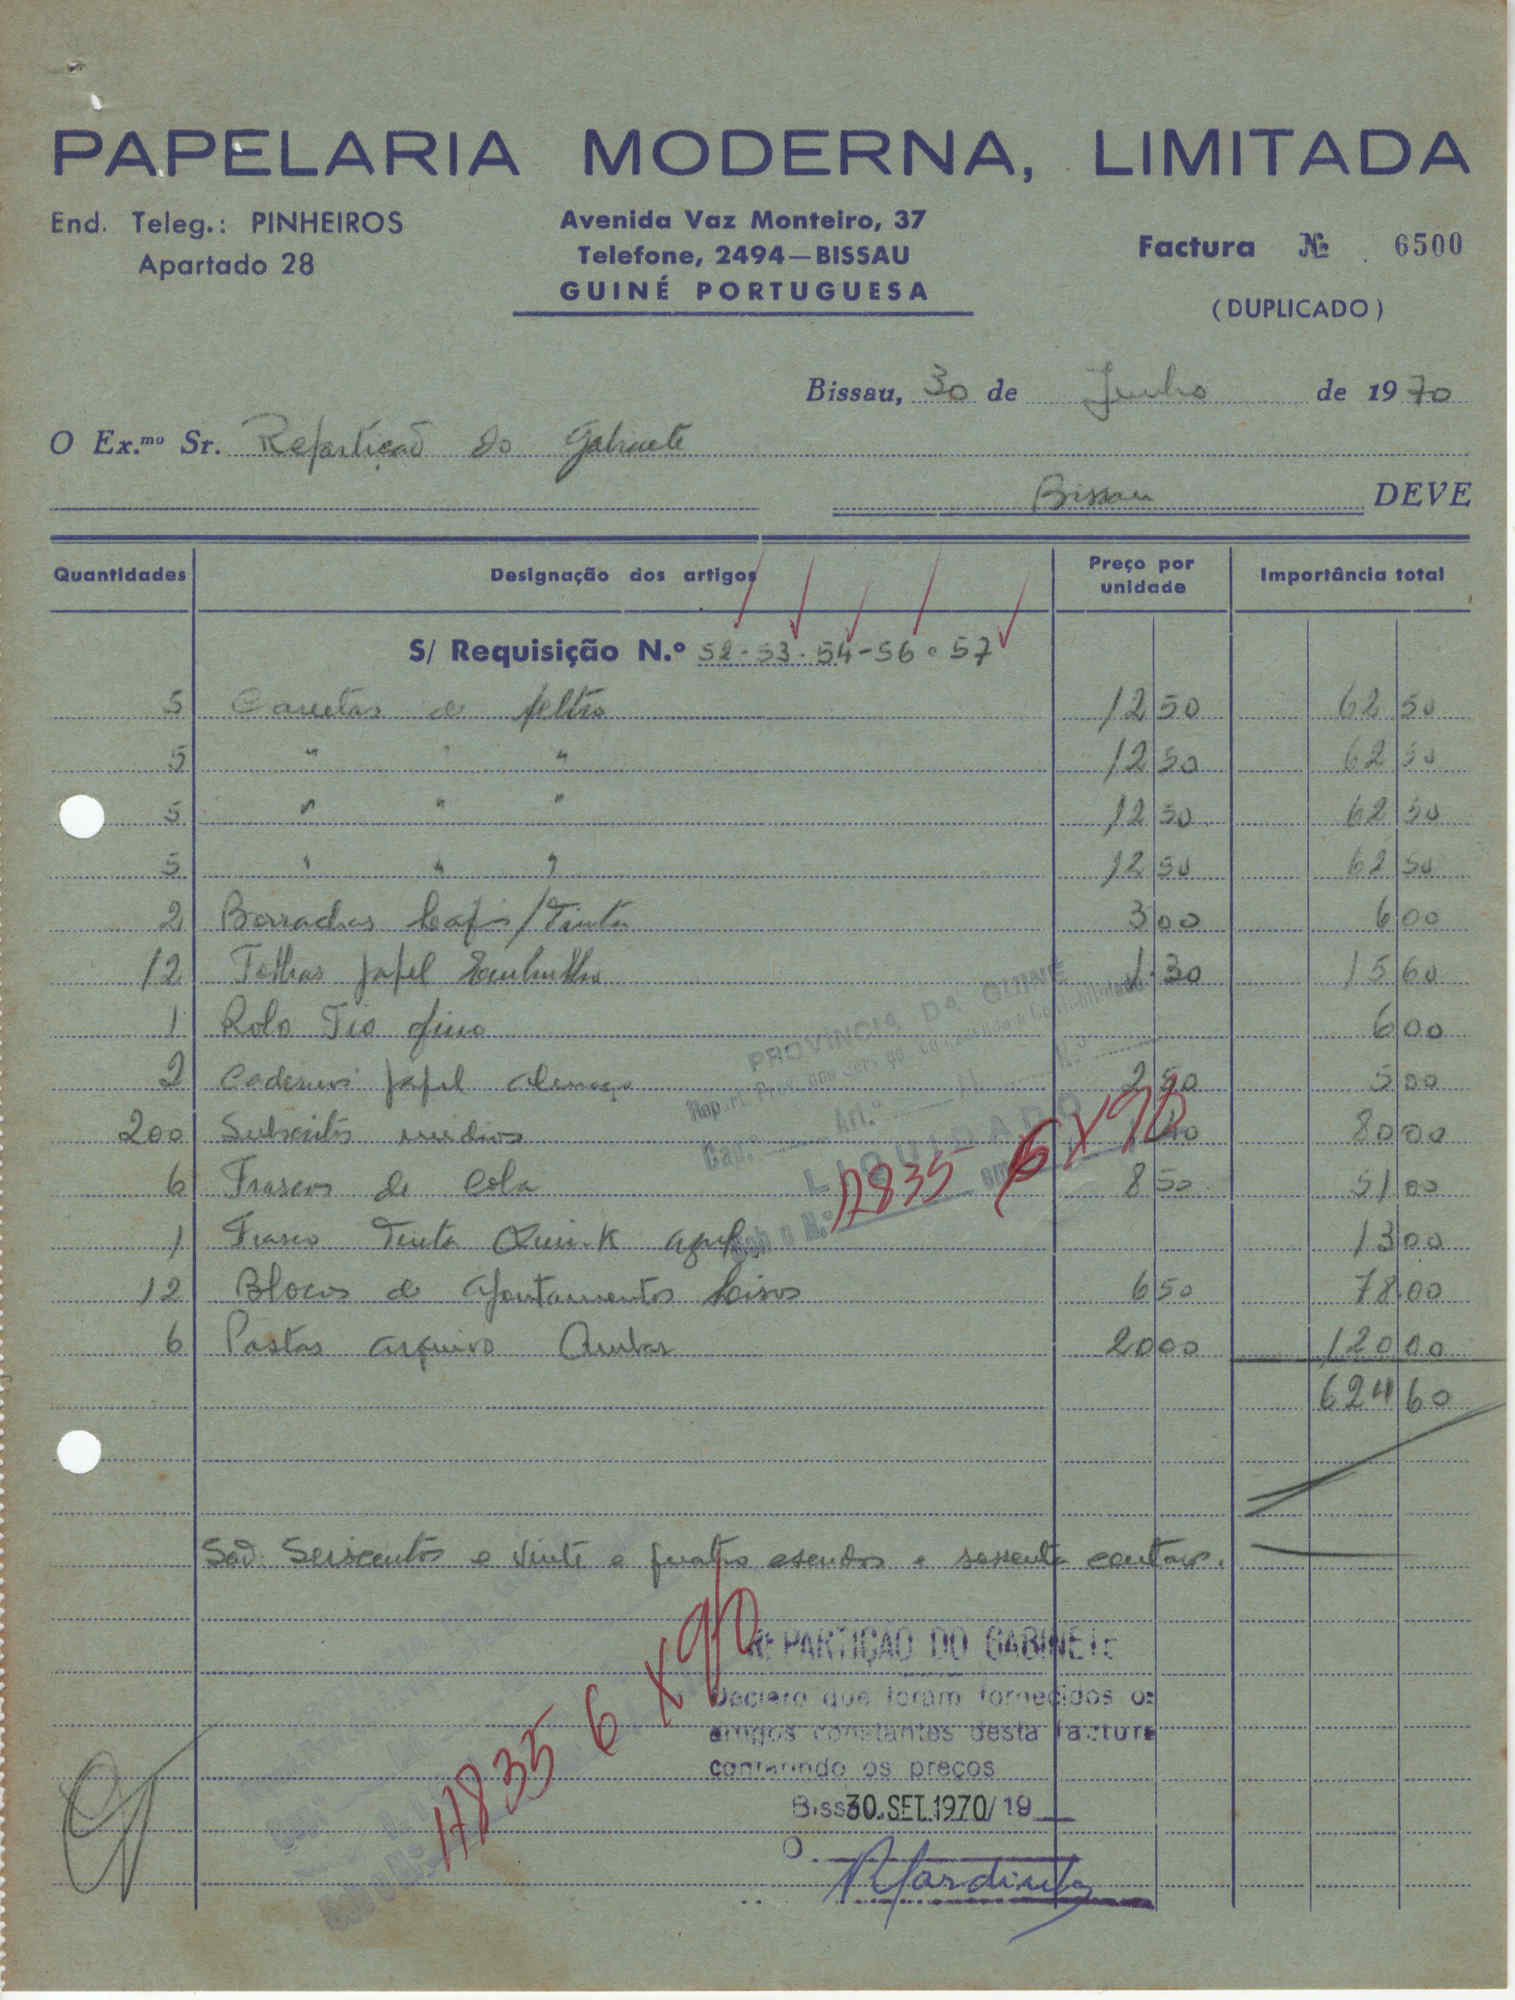 PAPELARIA MODERNA, LIMITADA
End. Teleg.: PINHEIROS
Apartado 28
Avenida Vaz Monteiro, 37
Telefone, 2494—BISSAU
GUINÉ PORTUGUESA
Factura № 6500
(DUPLICADO)
Bissau, 30 de Junho de 1970
O Ex.mo Sr. Repartição do Gabinete
Bissau DEVE
Quantidades Designação dos artigos Preço por unidade Importância total
S/ Requisição N.º 52-53-54-56 e 57
5 Canetas de feltro 12 50 62 50
5 " " " 12 50 62 50
5 " " " 12 50 62 50
5 " " " 12 50 62 50
2 Borrachas Lapis/Tinta 3 00 6 00
12 Folhas papel 1.30 15 60
1 Rolo Fio fino 6 00
2 Cadernos papel almaço 2 50 5 00
200 Subscritos médios 40 80 00
6 Frascos de Cola 8 50 51 00
1 Frasco Tinta Quink azul 13 00
12 Blocos de apontamentos Lisos 6 50 78 00
6 Pastas arquivo Ambar 20 00 120 00
624 60
PROVINCIA DA GUINÉ
Repart. Prov. dos Serviços de Contabilidade
Cap.º Art.º N.º
LIQUIDADO
Sob o N.º 17835 em 6 X 70
São Seiscentos e vinte e quatro escudos e sessenta centavos.
17835 6 X 70
REPARTIÇÃO DO GABINETE
Declaro que foram fornecidos os
artigos constantes desta factura
conferindo os preços
Bissau 30.SET.1970/19
O